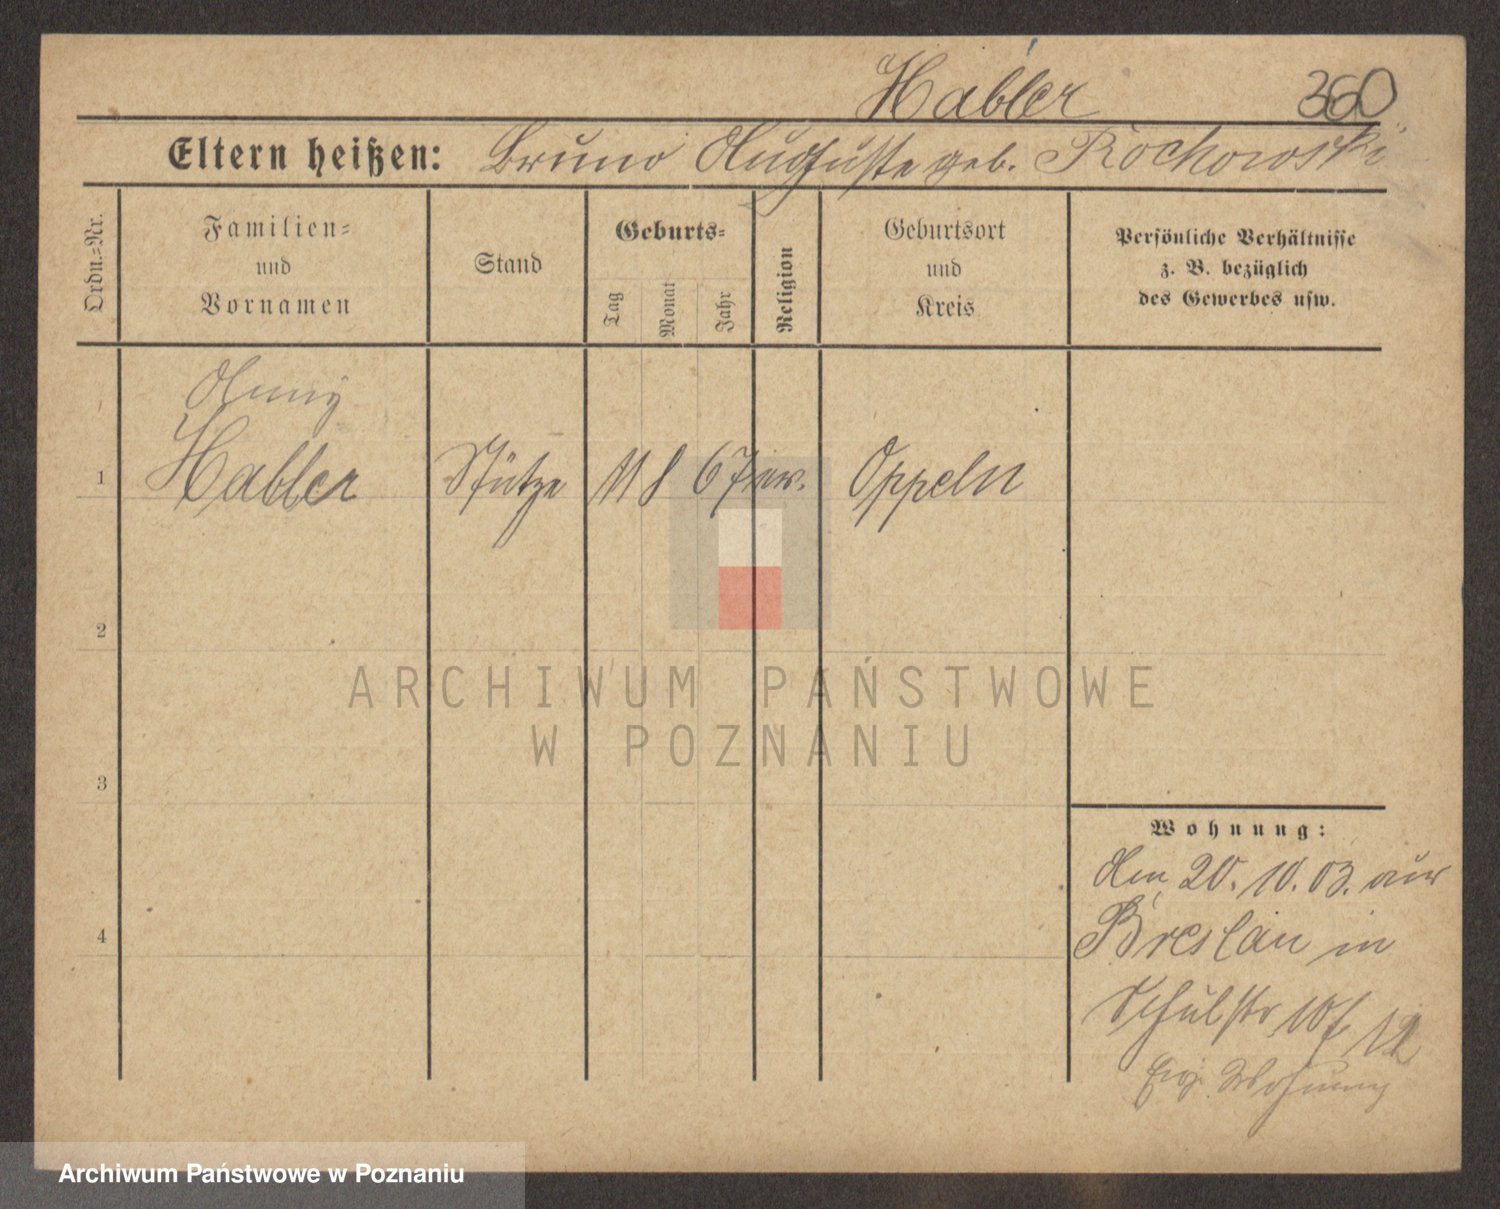 Habler 360
Eltern heißen: Bruno Auguste geb. Rochowski
Ordn.-Nr.
Familien-
und
Vornamen
Stand
Geburts-
Tag
Monat
Jahr
Religion
Geburtsort
und
Kreis
Persönliche Verhältnisse
z. B. bezüglich
des Gewerbes usw.
1 Habler Stütze 11 8 67 ev. Oppeln
2
3
4
ARCHIWUM PAŃSTWOWE
W POZNANIU
Wohnung:
Am 20. 10. 03. aus
Breslau in
Schulstr 10
Wohnung
Archiwum Państwowe w Poznaniu